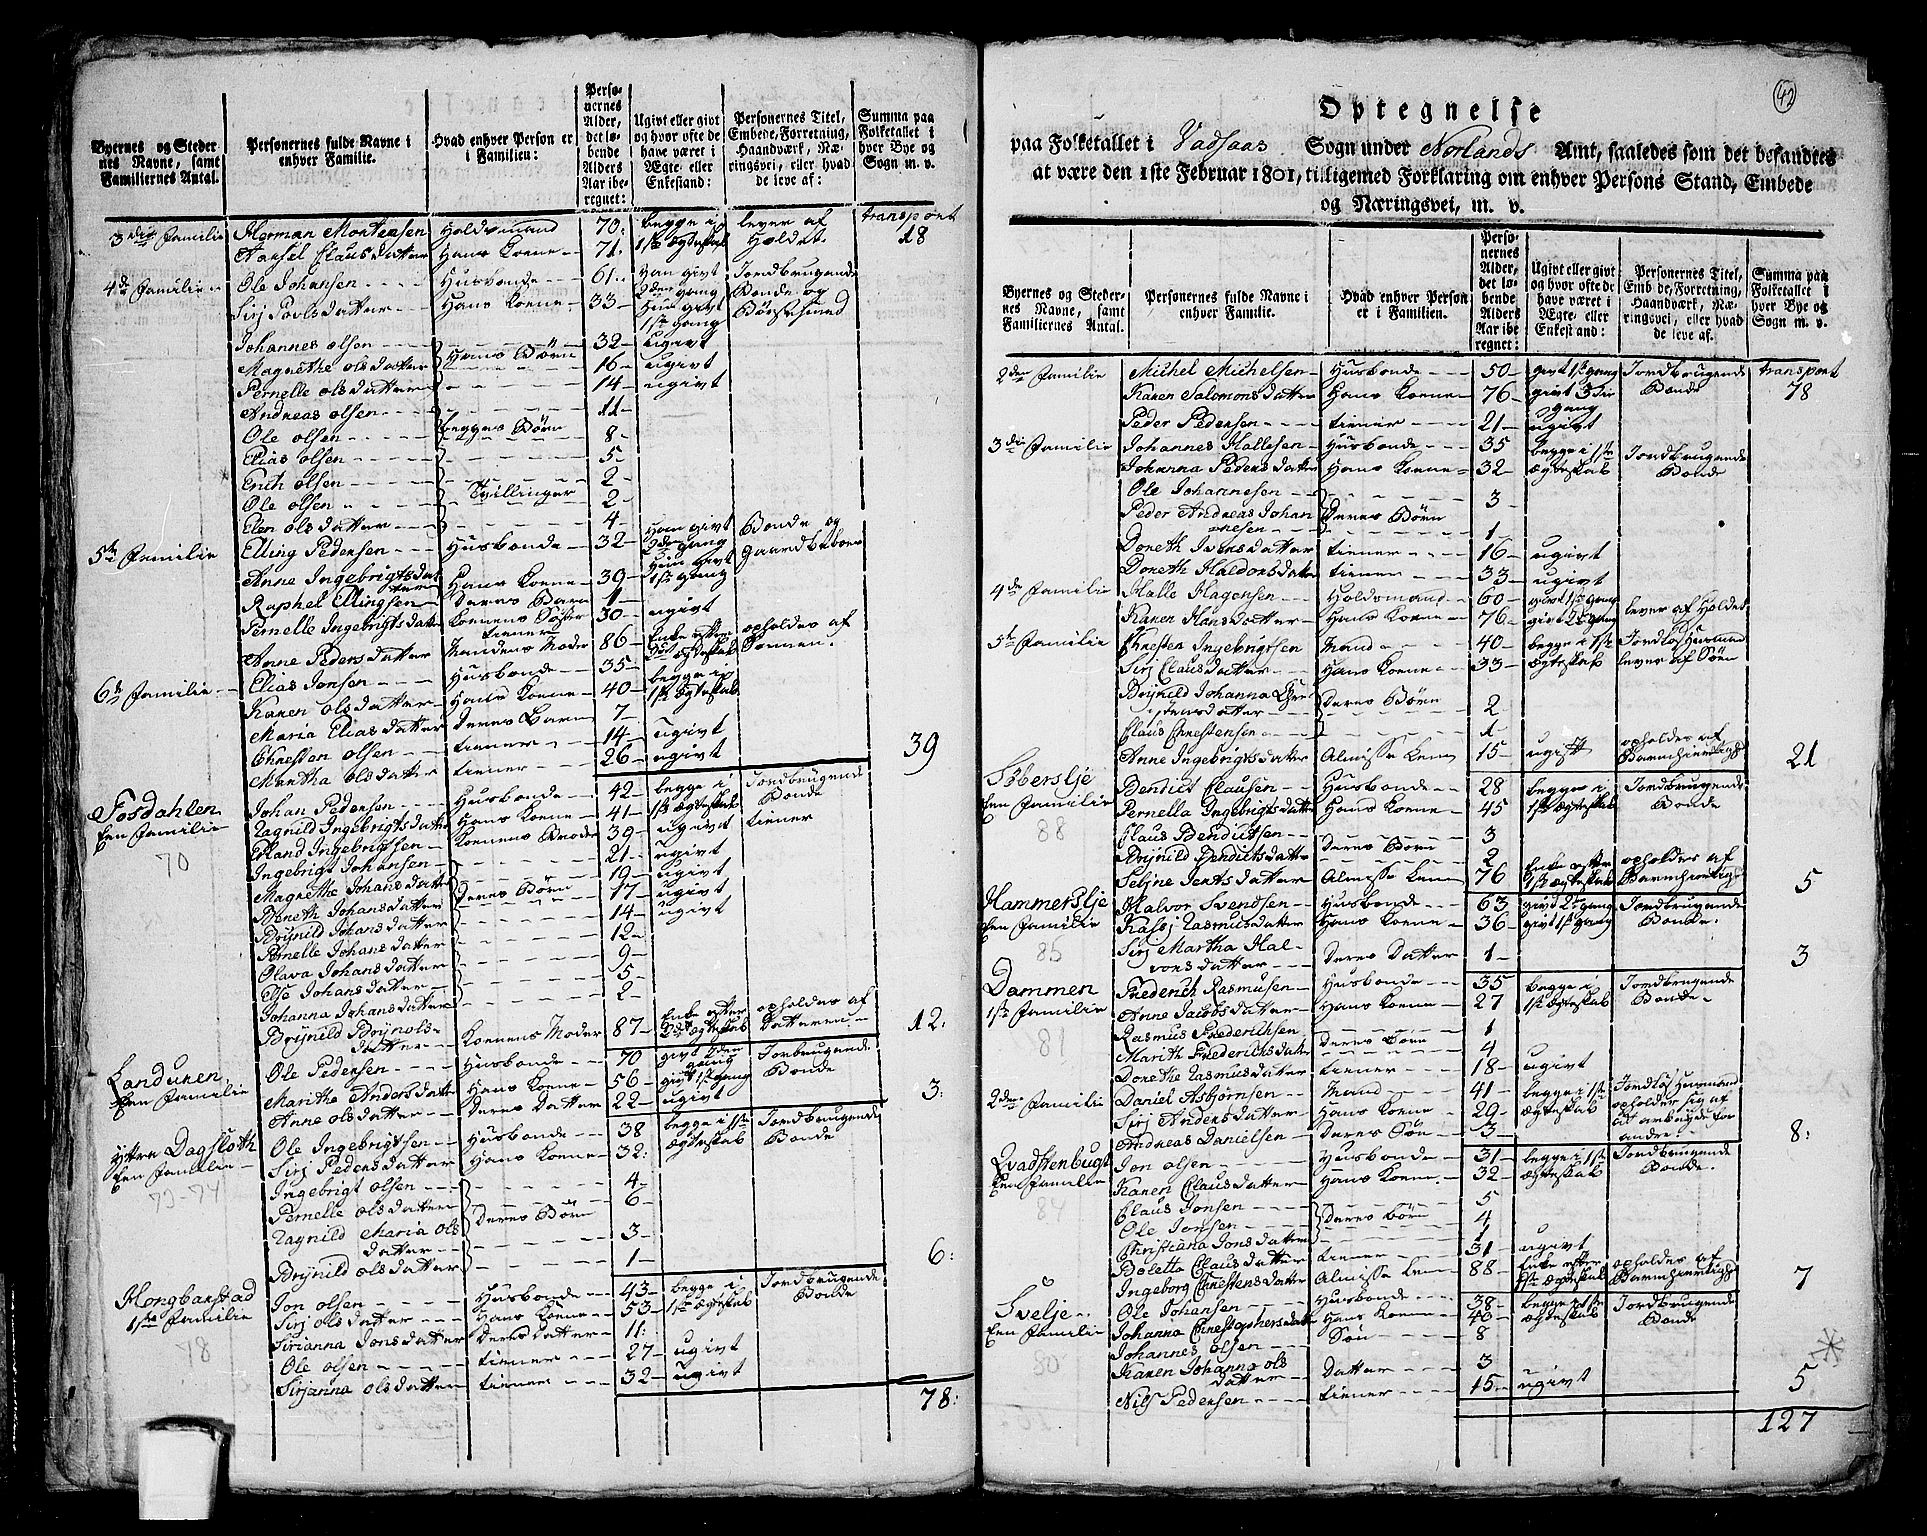 Byernes og Steder-
nes Navne, samt
Familiernes Antal.
Personernes fulde Navne i
enhver Familie.
Hvad enhver Person er
i Familien:
Perso-
nernes
Alder,
det lø-
bende
Alders
Aar ibe-
regnet:
Ugivt eller givt
og hvor ofte de
have været i
Ægte- eller
Enkestand:
Personernes Titel,
Embede, Forretning,
Haandværk, Næ-
ringsvei, eller hvad
de leve af:
Summa paa
Folketallet i
hver Bye og
Sogn m. v.
transport
18
3die Familie Herman Mortensen Holdsmand 70: begge i lever af
Claus datter Hans Kone 71: 1ste ægteskab Holdet.
4de Familie Ole Johansen Husbonde 61: Han givt Jordbrugende
2den gang Bonde og
Sirj Povls datter Hans Kone 33 Hun givt Bøssesmed
1ste gang
Johannes olsen 32 ugivt
Magnethe ols datter Hans Børn 16 ugivt
Pernelle ols datter 14 ugivt
Andreas olsen 11
Ole olsen begges Børn 8
Elias olsen 5
Erich olsen 2
Ole olsen Tvillinger 2
Elen ols datter 4
5te Familie Elling Pedersen Husbonde 32 Han givt Bonde og
2den gang Gaardbeboer
Anne Ingebrigts dat Hans Kone 39 Hun givt
ter 1ste gang
Raphel Ellingsen Deres Barn 1
Pernelle Ingebrigts datter Konens Søster 30 ugivt
tiener
Anne Peders datter Mandens Moder 86 Enke efter opholdes af
2det ægteskab Sønnen.
6te Familie Elias Jonsen Husbonde 35 begge i
Karen ols datter Hans Kone 40 1ste ægteskab
Maria Elias datter Deres Barn 7
Christen olsen tiener 14 ugivt
Martha ols datter tiener 26 ugivt 39
Fosdahlen Johan Pedersen Husbonde 42 begge i Jordbrugende
Een Familie Ragnild Ingebrigts datter Hans Kone 41 1ste ægteskab Bonde
70 Erland Ingebrigtsen Konens Broder 39 ugivt tiener
Ingebrigt Johansen 21 ugivt
Magnethe Johans datter 19 ugivt
Johans datter Deres Børn 17 ugivt
Brynild Johans datter 14 ugivt
Pernelle Johans datter 12
Olava Johans datter 9
Else Johans datter 5
Johanna Johans datter 2
Brynild Brynols- Konens Moder 87 Enke efter opholdes af
datter 2det ægteskab Datteren. 12:
Landuren Ole Pedersen Husbonde 70 givt 2den Jorbrugende
gang Bonde
Een Familie Marithe Anders datter Hans Kone 56 givt 1ste gang
Anne ols datter Deres Datter 22 ugivt 3:
yttre Dagsloth Ole Ingebrigtsen Husbonde 38 begge i 1ste Jordbrugende
Een Familie Sirj Peders datter Hans Kone 32: ægteskab Bonde
73-74 Ingebrigt olsen 4
Pernelle ols datter 6
Ragnild Maria ols Deres Børn 3
datter
Brynild ols datter 1 6:
Hongbarstad Jon olsen Husbonde 43 begge i Jordbrugende
1ste Familie Sirj ols datter Hans Kone 53 1ste ægteskab Bonde
78 Sirianna Jons datter Deres Datter 11:
Ole olsen tiener 27 ugivt
Sirjanna ols datter tiener 32 ugivt
78:
42
Optegnelse
paa Folketallet i Vadsaas Sogn under Norlands Amt, saaledes som det befandtes
at være den 1ste Februar 1801, tilligemed Forklaring om enhver Persons Stand, Embede
og Næringsvei, m. v.
Byernes og Steder-
nes Navne, samt
Familiernes Antal.
Personernes fulde Navne i
enhver Familie.
Hvad enhver Person
er i Familien.
Perso-
nernes
Alder,
det lø-
bende
Alders
Aar ibe
regnet:
Ugivt eller givt
og hvor ofte de
have været i
Ægte- eller
Enkestand:
Personernes Titel,
Embede, Forretning,
Haandværk, Næ-
ringsvei, eller hvad
de leve af.
Summa paa
Folketallet i
hver Bye og
Sogn m. v.
2den Familie Michel Michelsen Husbonde 50 givt 1ste gang Jordbrugende transport
Karen Salomons datter Hans Kone 76 givt 3die Bonde 78
gang
Peder Pedersen tiener 21 ugivt
3die Familie Johannes Hallesen Husbonde 35 begge i 1ste Jordbrugende
Johanna Peders datter Hans Kone 32 ægteskab Bonde
Ole Johannesen 3
Peder Andreas Johan Deres Børn
nesen 1
Doreth Ivers datter tiener 16 ugivt
Doreth Haldors datter tiener 33 ugivt
4de Familie Halle Hagensen Holdsmand 60 givt 1ste gang lever af Holdet
Karen Hans datter Hans Kone 76 givt 2den gang
5te Familie Christen Ingebrigtsen Mand 40 begge i 1ste Jordløs Huusmand
Sirj Claus datter Hans Kone 33 ægteskab lever af Søen
Brynild Johanna Chri Deres Børn 2
stens datter
Claus Christensen 1
Anne Ingebrigts datter Almisse Lem 15 ugift opholdes af
Barmhiertigh: 21
Soberslje Bendict Clausen Husbonde 28 begge i Jordbrugende
Een Familie Pernella Ingebrigts datter Hans Kone 45 1ste ægteskab Bonde
88 Claus Bendictsen 3
Brynild Bendicts datter Deres Børn 2
Seljne Jents datter Almisse Lem 76 Enke efter opholdes af
1ste ægteskab Barmhiertigh: 5
Hammerslje Halvor Svendsen Husbonde 63 givt 2den gang Jordbrugende
Een Familie Rasmus datter Hans Kone 36 givt 1ste gang Bonde.
85 Sirj Martha Hal- Deres Datter 1
vors datter 3
Dammen Frederich Rasmusen Husbonde 35 begge i Jordbrugende
1ste Familie Anne Jacobs datter Hans Kone 27 1ste ægteskab Bonde
81 Rasmus Frederichsen 1
Marith Frederichs datter Deres Børn 4
Dorethe Rasmus datter tiener 18 ugivt
2den Familie Daniel Asbjørnsen Mand 41 begge i 1ste Jordløs Huusmand
Sirj Anders datter Hans Kone 29 ægteskab opholder sig af
at arbeyde for
Andreas Danielsen Deres Søn 3 andre. 8:
Qvadstenbugt Jon olsen Husbonde 31 begge i 1ste Jordbrugende
Een Familie Karen Claus datter Hans Kone. 32 ægteskab Bonde.
84 Claus Jonsen 5
Ole Jonsen Deres Børn 4
Christiana Jons datter 1
Boletta Claus datter tiener 31 ugivt
Ingeborg Christens datter Almisse Lem 88 Enke efter opholdes af
1ste ægteskab Barmhiertigh: 7
Svelje Ole Johansen Husbonde 38 begge i 1ste Jordbrugende
Een Familie Johanna Christophers datter Hans Kone 40 ægteskab Bonde
80 Johannes olsen Søn 8
Karen Johanna ols Datter 3
datter
Nils Pedersen tiener 15 ugivt 5
127